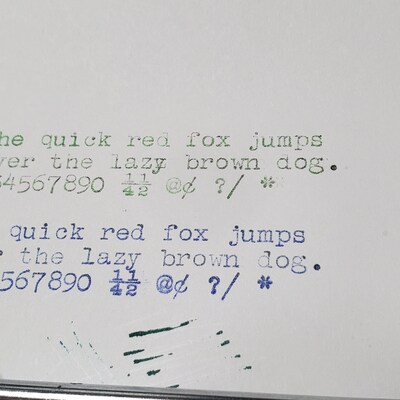 he quick red fox jumps
ver the lazy brown dog.
34567890 ¼½ @¢ ?/ *
quick red fox jumps
the lazy brown dog.
567890 ¼½ @¢ ?/ *